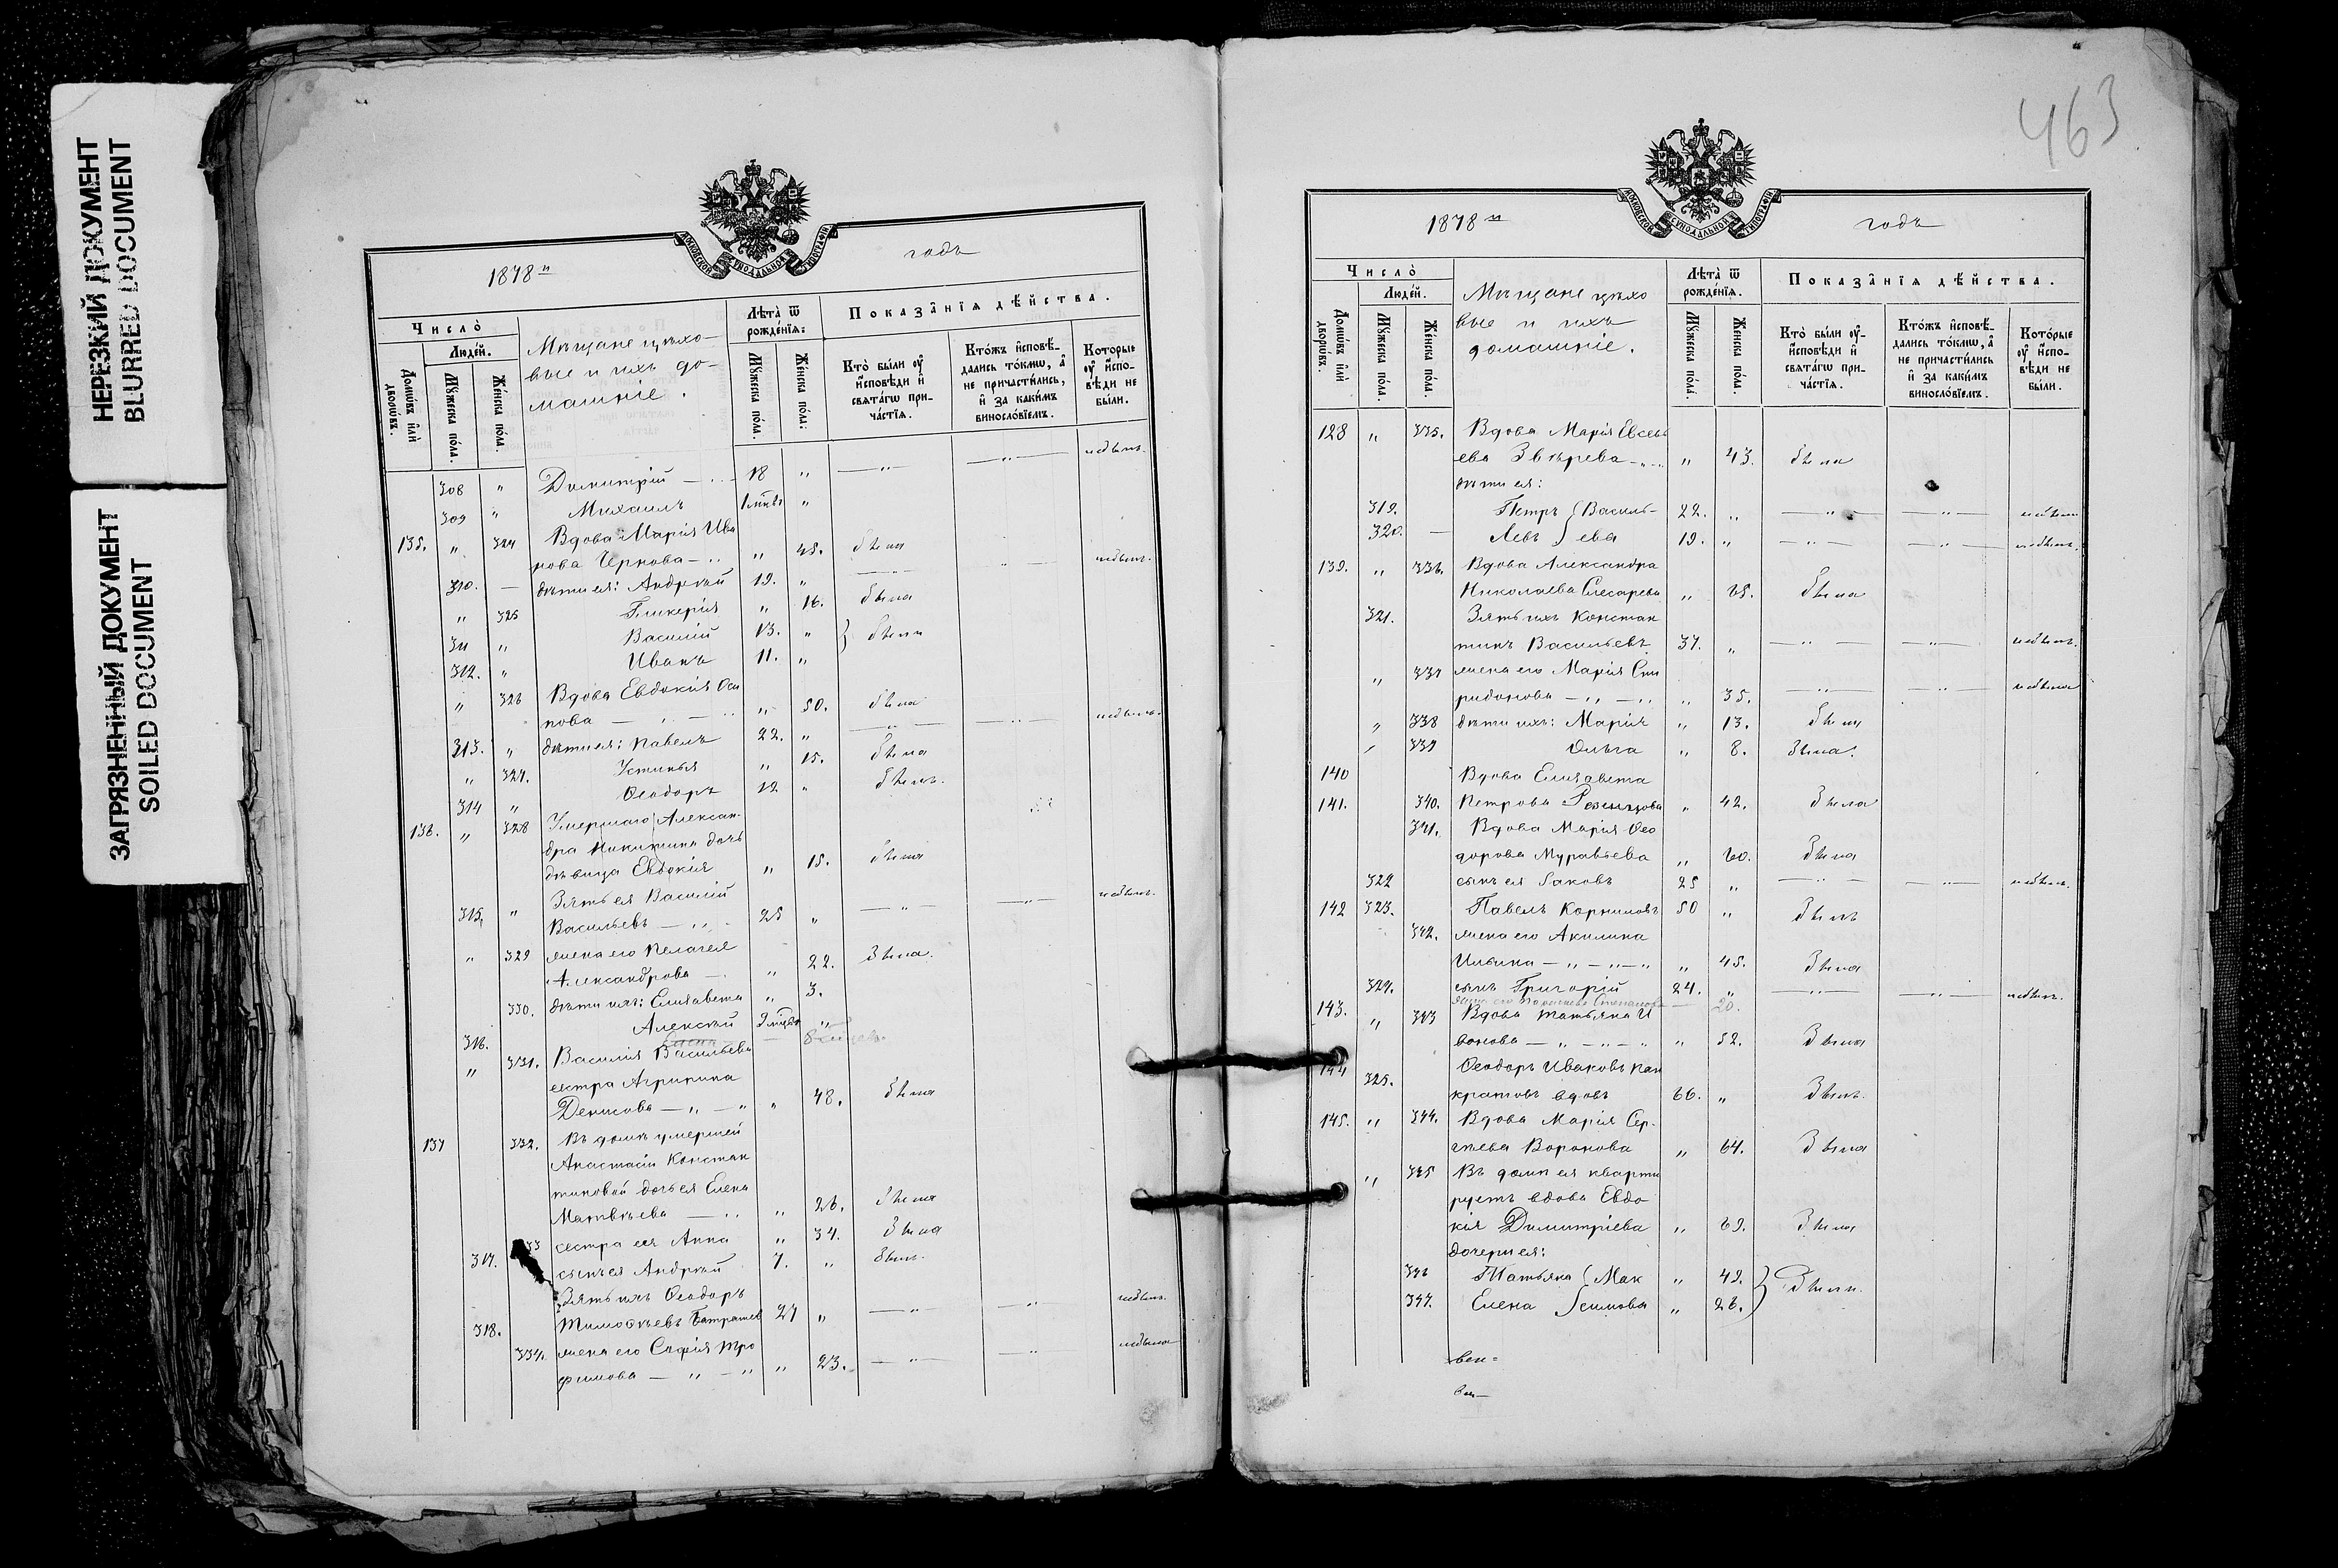 НЕРЕЗКИЙ ДОКУМЕНТ
BLURRED DOCUMENT
ЗАГРЯЗНЕННЫЙ ДОКУМЕНТ
SOILED DOCUMENT
МОСКОВСКОЙ СѴНОДАЛЬНОЙ ТИПОГРАФІИ
1878 й годъ
Число̀
Людéй.
Домѡ́въ и҆лѝ дворѡ́въ.
Мꙋ́жеска по́ла.
Же́нска по́ла.
Мѣщане цѣхо-
вые и ихъ до-
машніе.
Лѣ́та ѿ рожде́нїя:
Мꙋ́жеска по́ла.
Же́нска по́ла:
Показа̑нїя дѣ́йства.
Кто̀ бы́ли ᲂу҆ и҆сповѣди и҆ свята́гѡ при- ча́стїя.
Кто́жъ и҆сповѣ́- дались то́кмѡ, а҆ не причасти́лись, и҆ за каки́мъ винослóвїемъ.
Кото́рые ᲂу҆ и҆спо- вѣди не бы́ли.
308 „ Димитрій — 18 „ —„— —„— небылъ.
309 „ Михаилъ „
135. „ 324 Вдова Марія Ива
нова Чернова — „ 45. была
310. — дѣти ея: Андрей 19. „ —„— „— небылъ.
„ 325 Гликерія „ 16. была
311 „ Василій 13. „ } были
312. „ Иванъ 11. „
„ 326 Вдова Евдокія Оси
пова — „ — „ 50. была
313. „ дѣти ея: Павелъ 22. „ —„— —„— небылъ.
„ 327. Устинья „ 15. была
314 „ Ѳеодоръ 12 „ былъ.
136. „ 328 Умершаго Алексан-
дра Никитина дочь
дѣвица Евдокія „ 15. была
Зять ея Василій
315. „ Васильевъ — „ 25 „ —„— —„— небылъ.
„ 329 жена его Пелагея
Александрова — „ 22. была.
330. дѣти ихъ: Елизавета „ 3.
316. Алексѣй „
„ 331. Василія Васильева
сестра Агрипина
Денисова — „ — „ „ 48. была
137 332. Въ домѣ умершей
Анастасіи Констан
тиновой дочь ея Елена
Матвѣева — „ „ 26. была
сестра ея Анна „ 34. была
317. сынъ ея Андрей 7. „ былъ.
Зять ихъ Ѳеодоръ
318. Тимоѳеевъ 27 „ —„— —„— небылъ.
334. жена его Софія Тро
фимова — „ — „ „ 23. —„— —„— небыла
463
МОСКОВСКОЙ СѴНОДАЛЬНОЙ ТИПОГРАФІИ
1878 й годъ
Число̀
Людéй.
Домѡ́въ и҆лѝ дворѡ́въ.
Мꙋ́жеска по́ла.
Же́нска по́ла.
Мѣщане цѣхо
вые и ихъ
домашніе.
Лѣ́та ѿ рожде́нїя.
Мꙋ́жеска по́ла.
Же́нска по́ла.
Показа̑нїя дѣ́йства.
Кто̀ бы́ли ᲂу҆- и҆сповѣди и҆ свята́гѡ при- ча́стїя.
Кто́жъ и҆сповѣ́- дались то́кмѡ, а҆ не причасти́лись и҆ за каки́мъ винослóвїемъ.
Кото́рые ᲂу҆ и҆спо- вѣди не бы́ли.
128 „ 335. Вдова Марія Евсев
ева Звѣрева — „ „ 43. была
дѣти ея:
319. Петръ { Василь- 22. „ —„— —„— небылъ
320. — Левъ } ева 19. „ —„— —„— небылъ.
139. „ 336. Вдова Александра
Николаева Слесарева „ 65. была
321. Зять ихъ Констан
тинъ Васильевъ 37. „ —„— —„— небылъ.
„ 337 жена его Марія Спи
ридонова — „ — „ „ 35. —„— —„— небыла
„ 338 дѣти ихъ: Марія „ 13. была
„ 339 Ольга „ 8. была.
140 Вдова Елизавета
141. 340. Петрова „ 42. была
341. Вдова Марія Ѳео
дорова Муравьева „ 60. была
322 сынъ ея Іаковъ 25 „ —„— —„— небылъ.
142 323. Павелъ Корниловъ 50 „ былъ
342. жена его Акилина
Ильина — „ — „ — „ „ 45. была
324. сынъ Григорій 24. „ —„— —„— небылъ.
жена его Параскева Степанова — 20.
143. „ 343 Вдова Татьяна И
ванова — „ — „ — „ „ 52. была
144 Ѳеодоръ Ивановъ Пан
325. кратовъ вдовъ 66. „ былъ.
145. „ 344. Вдова Марія Сер-
гѣева Воронова „ 64. была
„ 345 Въ домѣ ея кварти
руетъ вдова Евдо
кія Димитріева „ 69. была
дочери ея:
346 Татьяна { Мак „ 42. }
347. Елена } симова „ 26. } были.
вен=
вен—